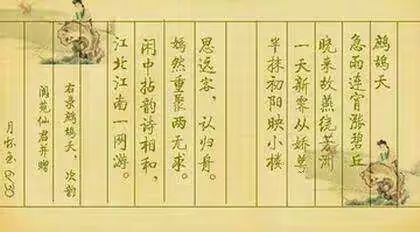 鹧鸪天
急雨连宵涨碧丘
晓来故燕绕芳洲
一天新霁从娇
半抹初阳映小楼
思远客，认归舟。
嫣然重聚两无求。
闲中拈韵诗相和，
江北江南一网游。
右录鹧鸪天，次韵
阆苑仙君并赠
月